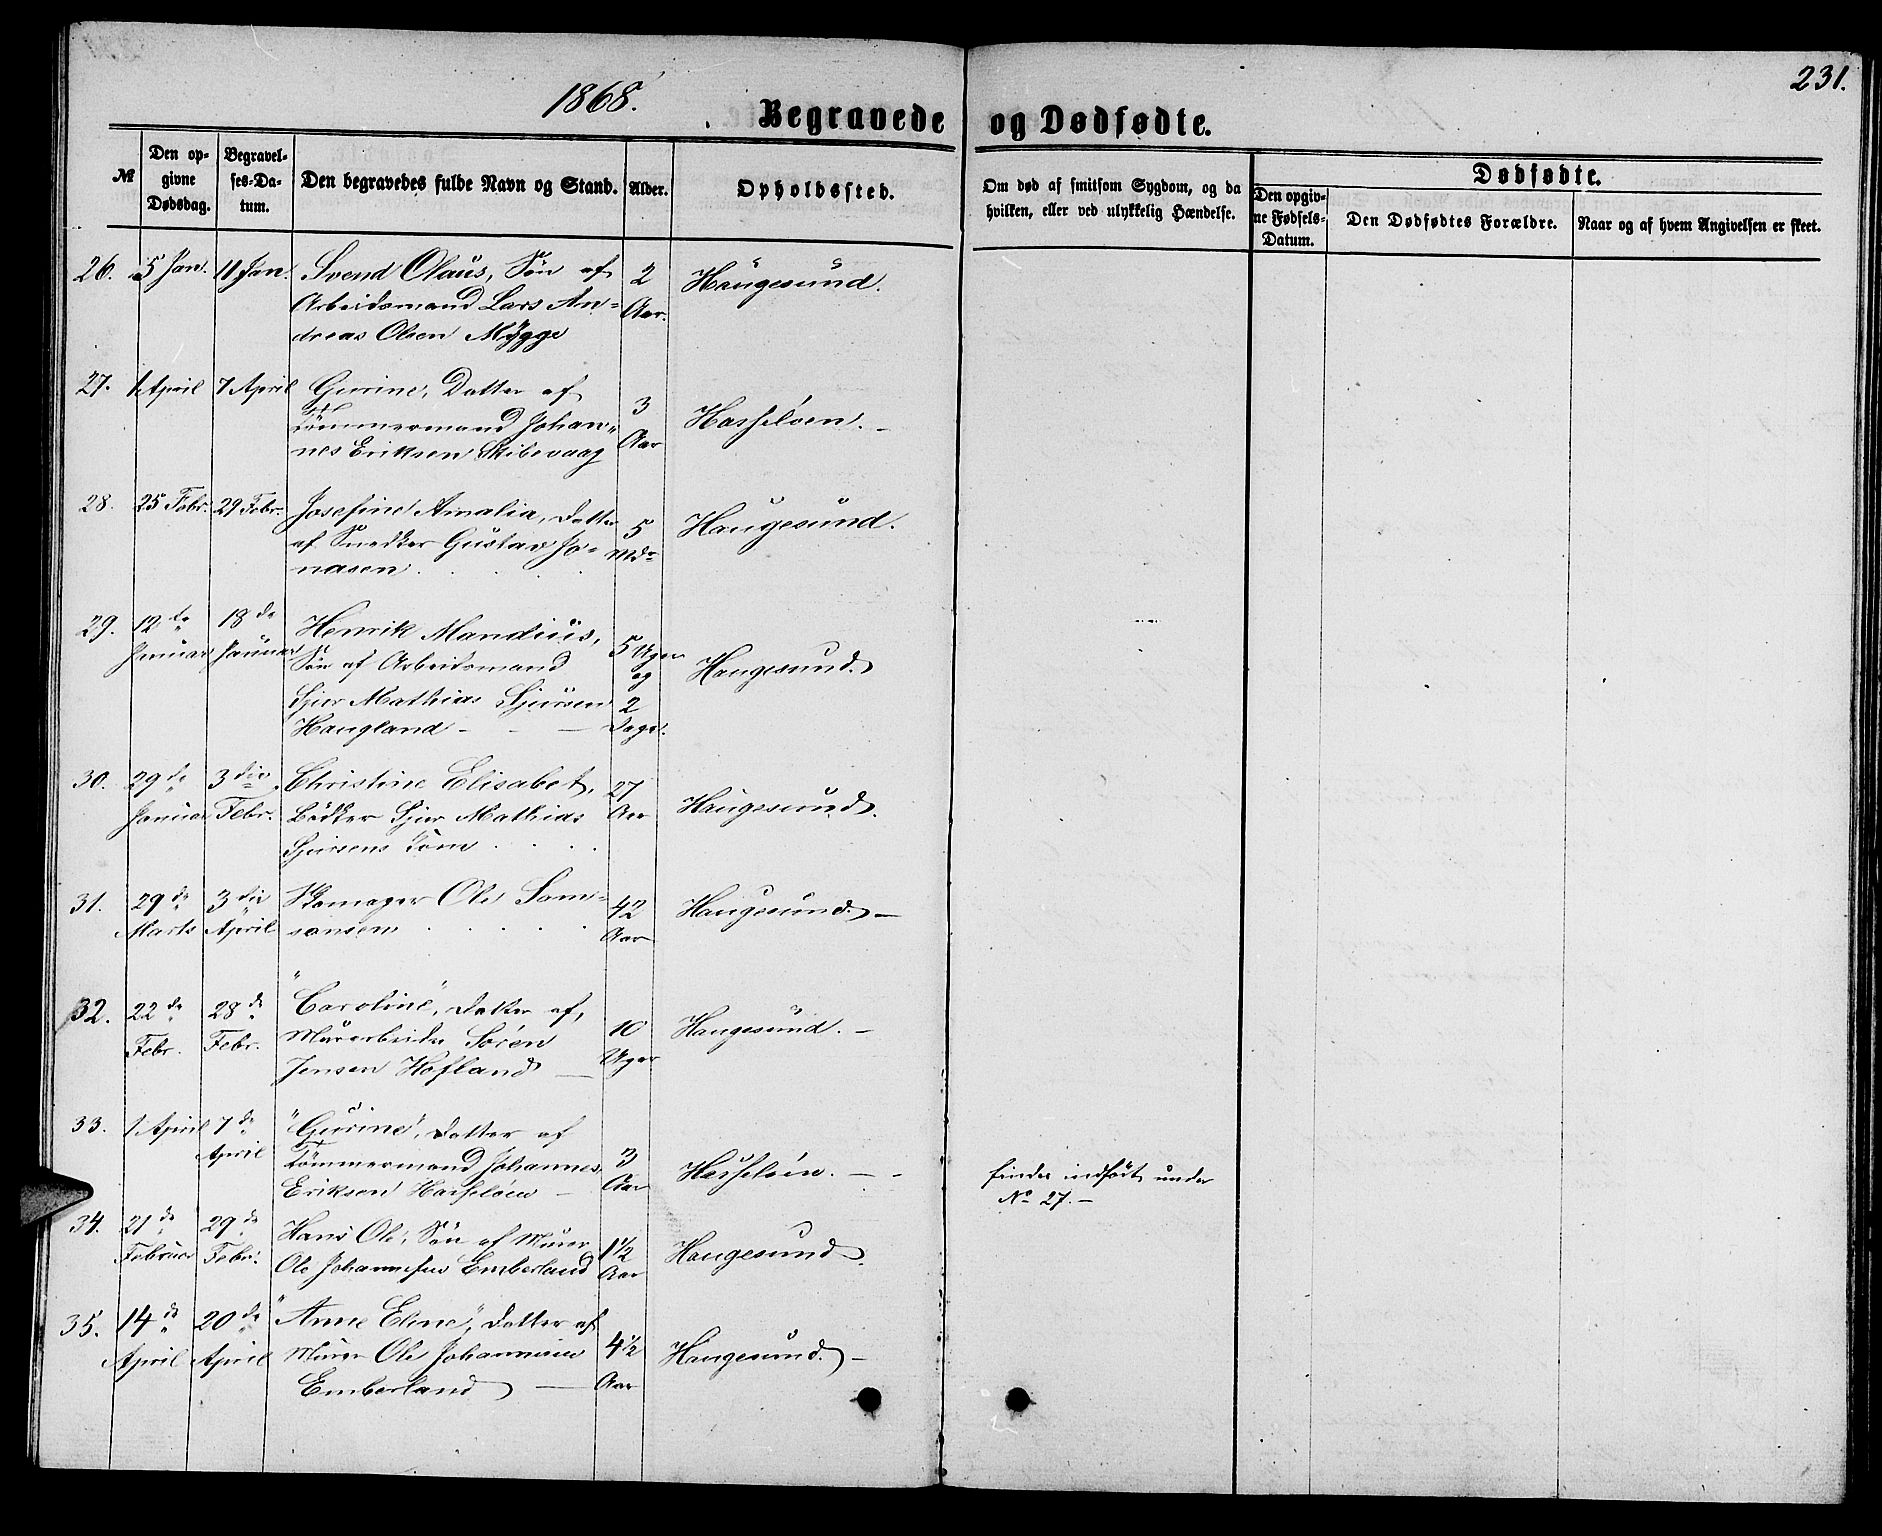 231.
1868.
Begravede og Dødfødte.
№
Den op-
givne
Dødsdag.
Begravel-
ses-Da-
tum.
Den begravedes fulde Navn og Stand.
Alder.
Opholdssted.
Om død af smitsom Sygdom, og da
hvilken, eller ved ulykkelig Hændelse.
Dødfødte.
Den opgiv-
ne Fødsels-
Datum.
Den Dødfødtes Forældre.
Naar og af hvem Angivelsen er skeet.
26. 5 Jan. 11 Jan. Svend Olaus, Søn af 2 Haugesund.
Arbeidsmand Lars An= Aar.
dreas Olsen Mygge
27. 1 April 7 April Gurine, Datter af 3
Tömmermand Johan= Aar Hasseløen. -
nes Eriksen Skibevaag
28. 25 Febr. 29 Febr. Josefine Amalia, Datter 5 Haugesund.
af Snedker Gustav Jo= Mdr
nasen . . . .
29. 12de 18de Henrik Mandius, 5 Uger
Januar Januar Søn af Arbeidsmand og Haugesund.
Sjur Mathias Sjursen 2
Haugland - - - Dage.
30. 29de 3die Christine Elisabet, 27
Januar Febr. Bödker Sjur Mathias Aar Haugesund.
Sjursens Kone . . .
31. 29de 3die Skomager Ole Sam= 42 Haugesund. -
Marts April sonsen . . . . . Aar
32. 22de 28de "Caroline", Datter af, 10 Haugesund. -
Febr. Febr. Murarbeider Søren Uger
Jensen Hofland -
33. 1 April 7de "Gurine", Datter af 3
April Tömmermand Johannes Aar Hasseløen. - - findes indført under
Eriksen Hasseløen - No 27. -
34. 21de 29de Hans Ole, Søn af Murer 1 1/2 Haugesund.
Februar Febr. Ole Johannesen Emberland Aar
35. 14de 20de "Anne Eline", Datter af 4 1/2
April April Murer Ole Johannesen Aar Haugesund. -
Emberland -